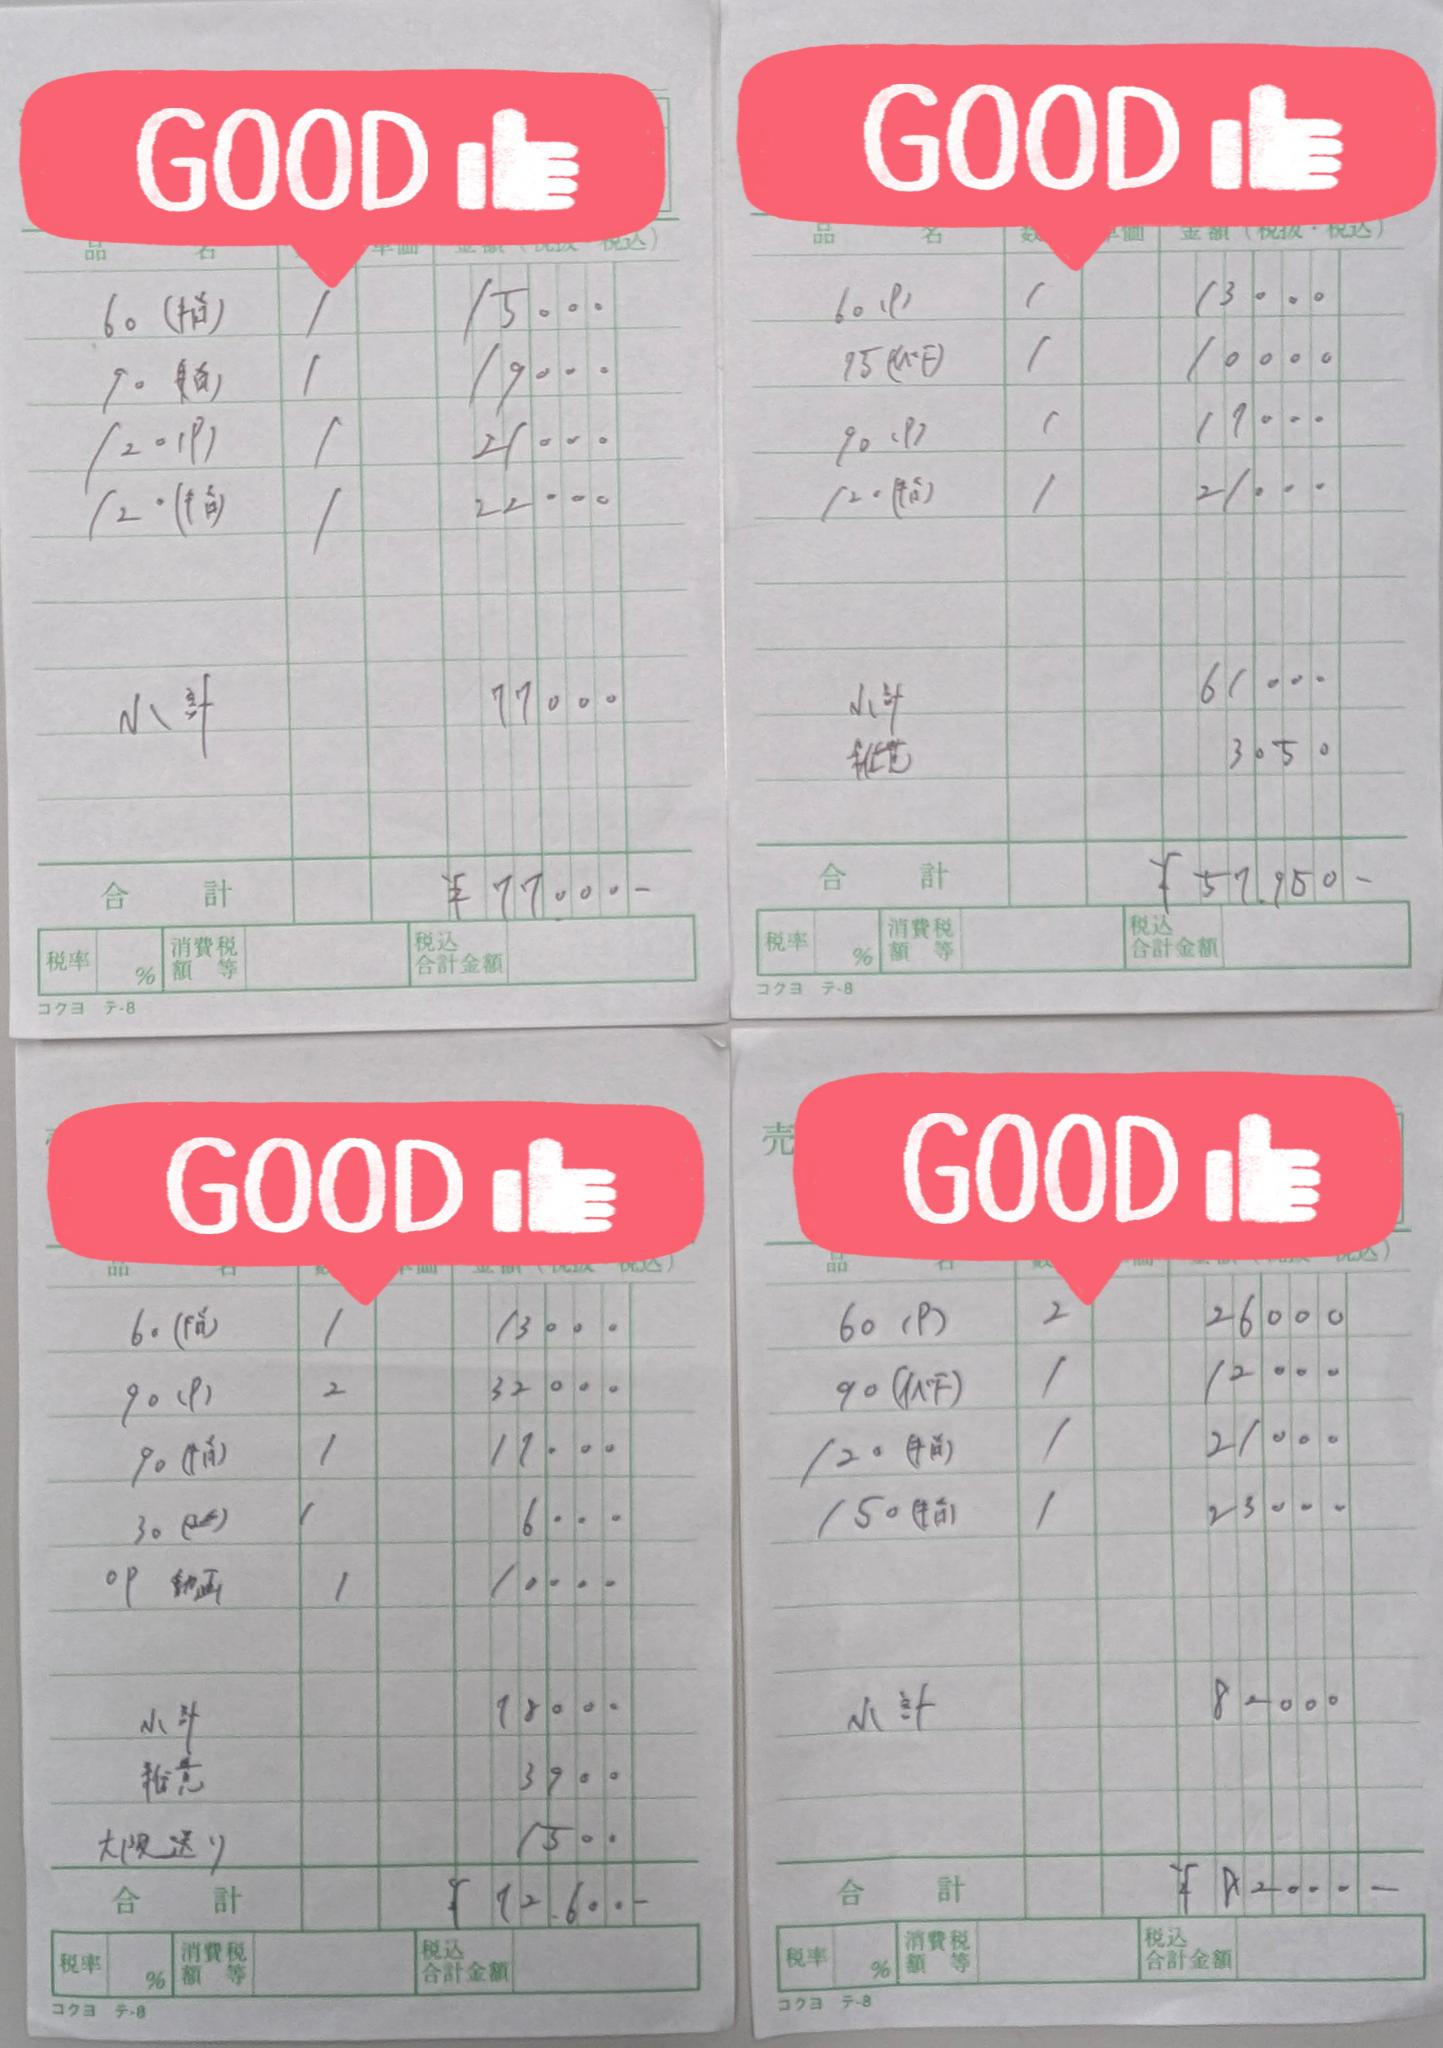 GOOD
品 名 単価 金額(税抜・税込)
60 (指) 1 15000
90 指) 1 19000
120(P) 1 21000
120(指) 1 22000
小計 77000
合計 ¥77000-
税率 % 消費税額等 税込合計金額
コクヨ テ-8
GOOD
品 名 数 単価 金額(税抜・税込)
60(P) 1 13000
1 10000
90(P) 1 17000
120(指) 1 21000
小計 61000
雑費 3050
合計 ¥57,950-
税率 % 消費税額等 税込合計金額
コクヨ テ-8
GOOD
品 名 数 単価 金額(税抜・税込)
60(指) 1 13000
90(P) 2 32000
90(指) 1 17000
30 1 6000
OP 動画 1 10000
小計 78000
雑費 3900
大阪送り 1500
合計 ¥72,600-
税率 % 消費税額等 税込合計金額
コクヨ テ-8
売
GOOD
品 名 数 単価 金額(税抜・税込)
60(P) 2 26000
90 1 12000
120(指) 1 21000
150(指) 1 23000
小計 82000
合計 ¥82000-
税率 % 消費税額等 税込合計金額
コクヨ テ-8